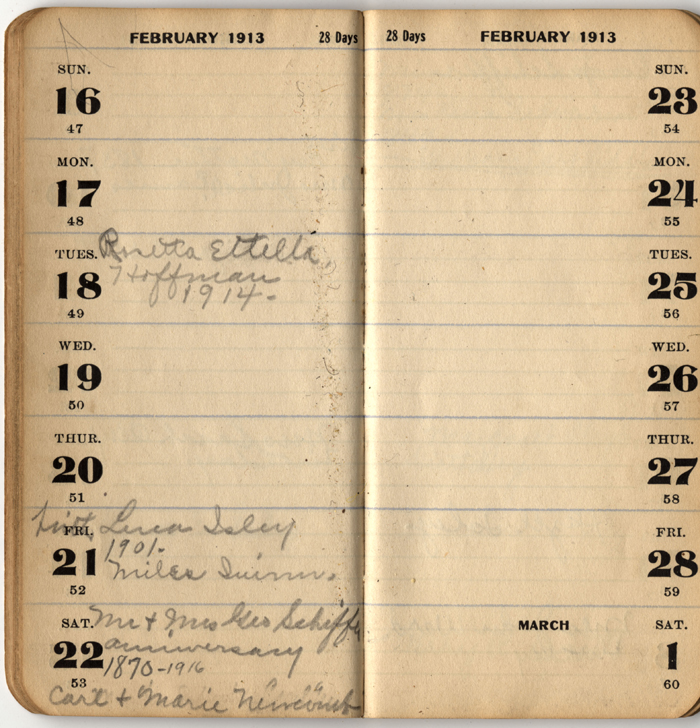 FEBRUARY 1913 28 Days
SUN.
16
47
MON.
17
48
TUES. Rosetta Ettella
18 Hoffman
1914.
49
WED.
19
50
THUR.
20
51
Lura Isley
FRI.
1901.
21 Miles
52
SAT. Mr + Mrs Geo Schiffle
22 anniversary
1870-1916
53
Carl + Marie Newcomb
28 Days FEBRUARY 1913
SUN.
23
54
MON.
24
55
TUES.
25
56
WED.
26
57
THUR.
27
58
FRI.
28
59
MARCH SAT.
1
60